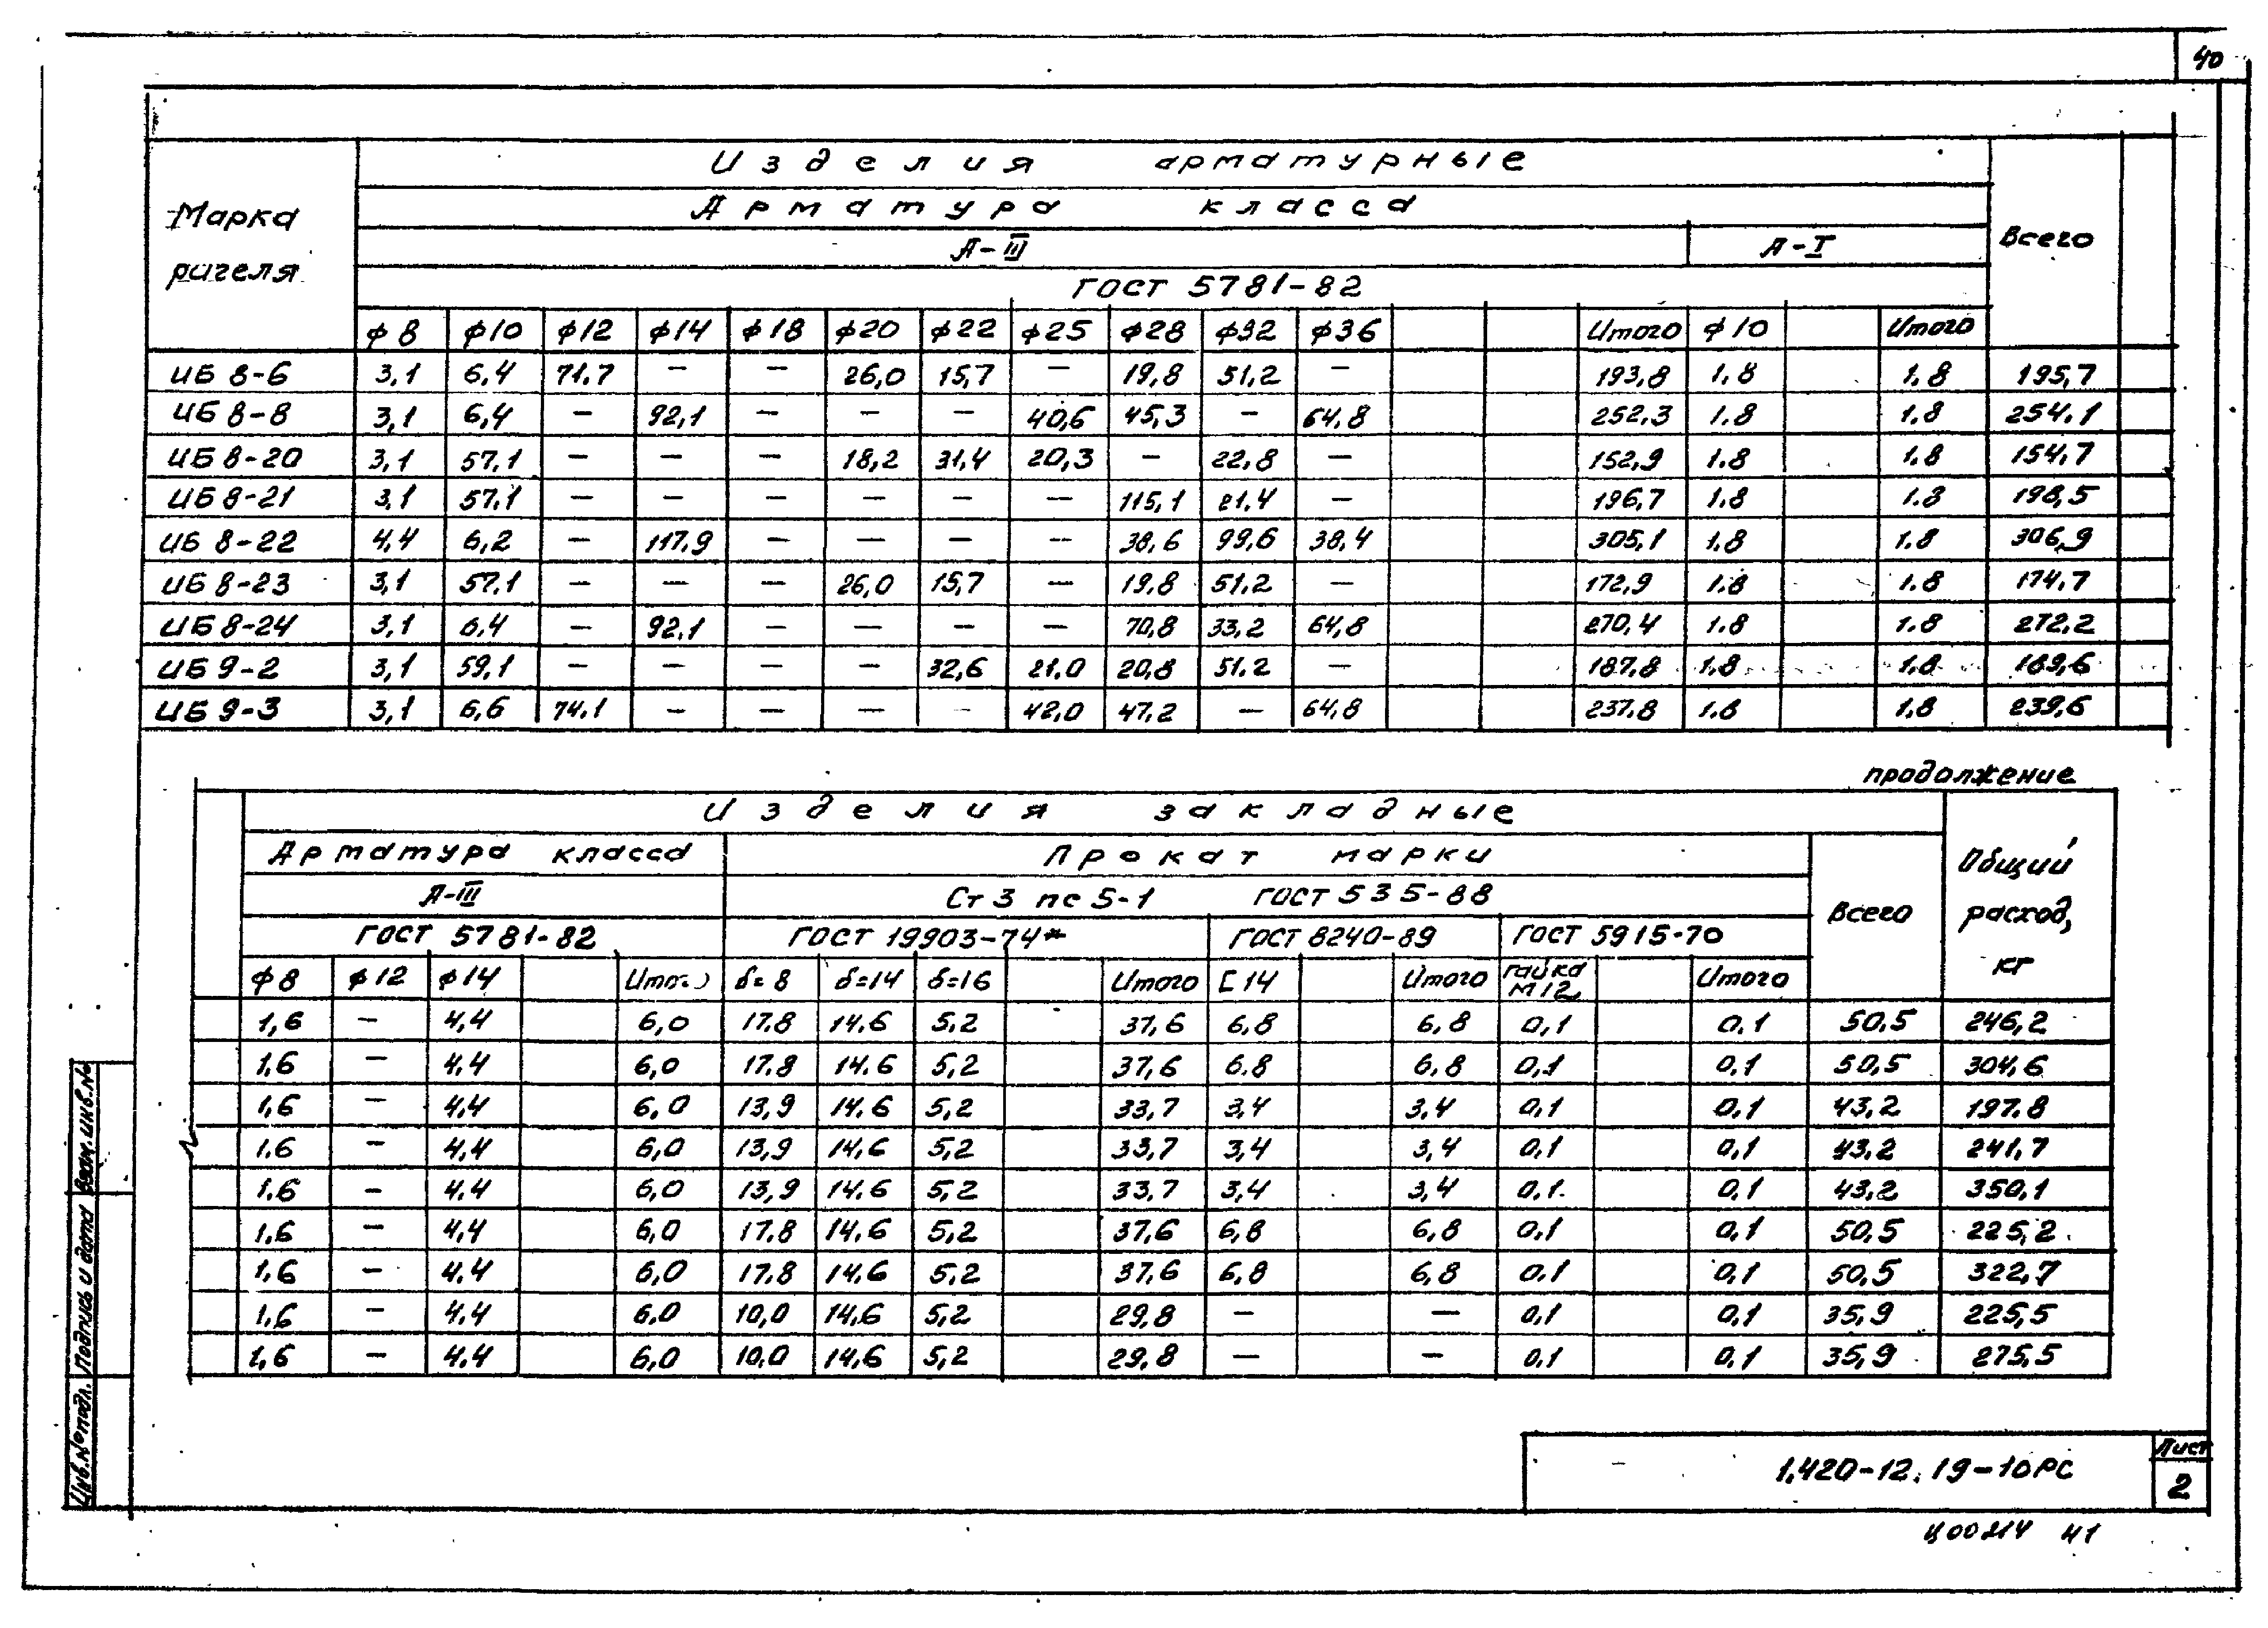 40
Изделия арматурные
Арматура класса
Марка ригеля
А-III А-I Всего
ГОСТ 5781-82
ф8 ф10 ф12 ф14 ф18 ф20 ф22 ф25 ф28 ф32 ф36 Итого ф10 Итого
ИБ 8-6 3,1 6,4 71,7 — — 26,0 15,7 — 19,8 51,2 — 193,8 1,8 1,8 195,7
ИБ 8-8 3,1 6,4 — 92,1 — — — 40,6 45,3 — 64,8 252,3 1.8 1.8 254,1
ИБ 8-20 3,1 57,1 — — — 18,2 31,4 20,3 — 22,8 — 152,9 1.8 1.8 154,7
ИБ 8-21 3,1 57,1 — — — — — — 115,1 21,4 — 196,7 1.8 1.8 198,5
ИБ 8-22 4,4 6,2 — 117,9 — — — — 38,6 99,6 38,4 305,1 1.8 1.8 306,9
ИБ 8-23 3,1 57,1 — — — 26,0 15,7 — 19,8 51,2 — 172,9 1.8 1.8 174,7
ИБ 8-24 3,1 6,4 — 92,1 — — — — 70,8 33,2 64,8 270,4 1.8 1.8 272,2
ИБ 9-2 3,1 59,1 — — — — 32,6 21,0 20,8 51.2 — 187,8 1.8 1.8 189,6
ИБ 9-3 3,1 6,6 74,1 — — — — 42,0 47,2 — 64,8 237,8 1.8 1,8 239,6
продолжение
Изделия закладные
Арматура класса Прокат марки
Общий расход, кг
А-III Ст3пс5-1 ГОСТ 535-88
Всего
ГОСТ 5781-82 ГОСТ 19903-74* ГОСТ 8240-89 ГОСТ 5915-70
ф8 ф12 ф14 Итого δ=8 δ=14 δ=16 Итого [14 Итого гайка М12 Итого
1,6 — 4,4 6,0 17,8 14,6 5,2 37,6 6,8 6,8 0,1 0,1 50,5 246,2
1,6 — 4,4 6,0 17,8 14,6 5,2 37,6 6.8 6,8 0,1 0,1 50,5 304,6
1,6 — 4,4 6,0 13,9 14,6 5,2 33,7 3,4 3,4 0,1 0,1 43,2 197.8
1.6 — 4,4 6,0 13,9 14,6 5,2 33,7 3,4 3,4 0,1 0,1 43,2 241,7
1.6 — 4,4 6,0 13,9 14,6 5,2 33,7 3,4 3,4 0,1 0,1 43,2 350,1
1,6 — 4,4 6,0 17,8 14,6 5,2 37,6 6,8 6,8 0,1 0,1 50,5 225,2
1,6 — 4,4 6,0 17,8 14,6 5,2 37,6 6,8 6,8 0,1 0,1 50,5 322,7
1,6 — 4,4 6.0 10,0 14,6 5,2 29,8 — — 0,1 0,1 35,9 225,5
1,6 — 4,4 6,0 10,0 14,6 5,2 29,8 — — 0.1 0,1 35,9 275,5
Взам.инв.№
Подпись и дата
Инв.№ подл.
1.420-12.19-10РС
Лист
2
Ц00214 41